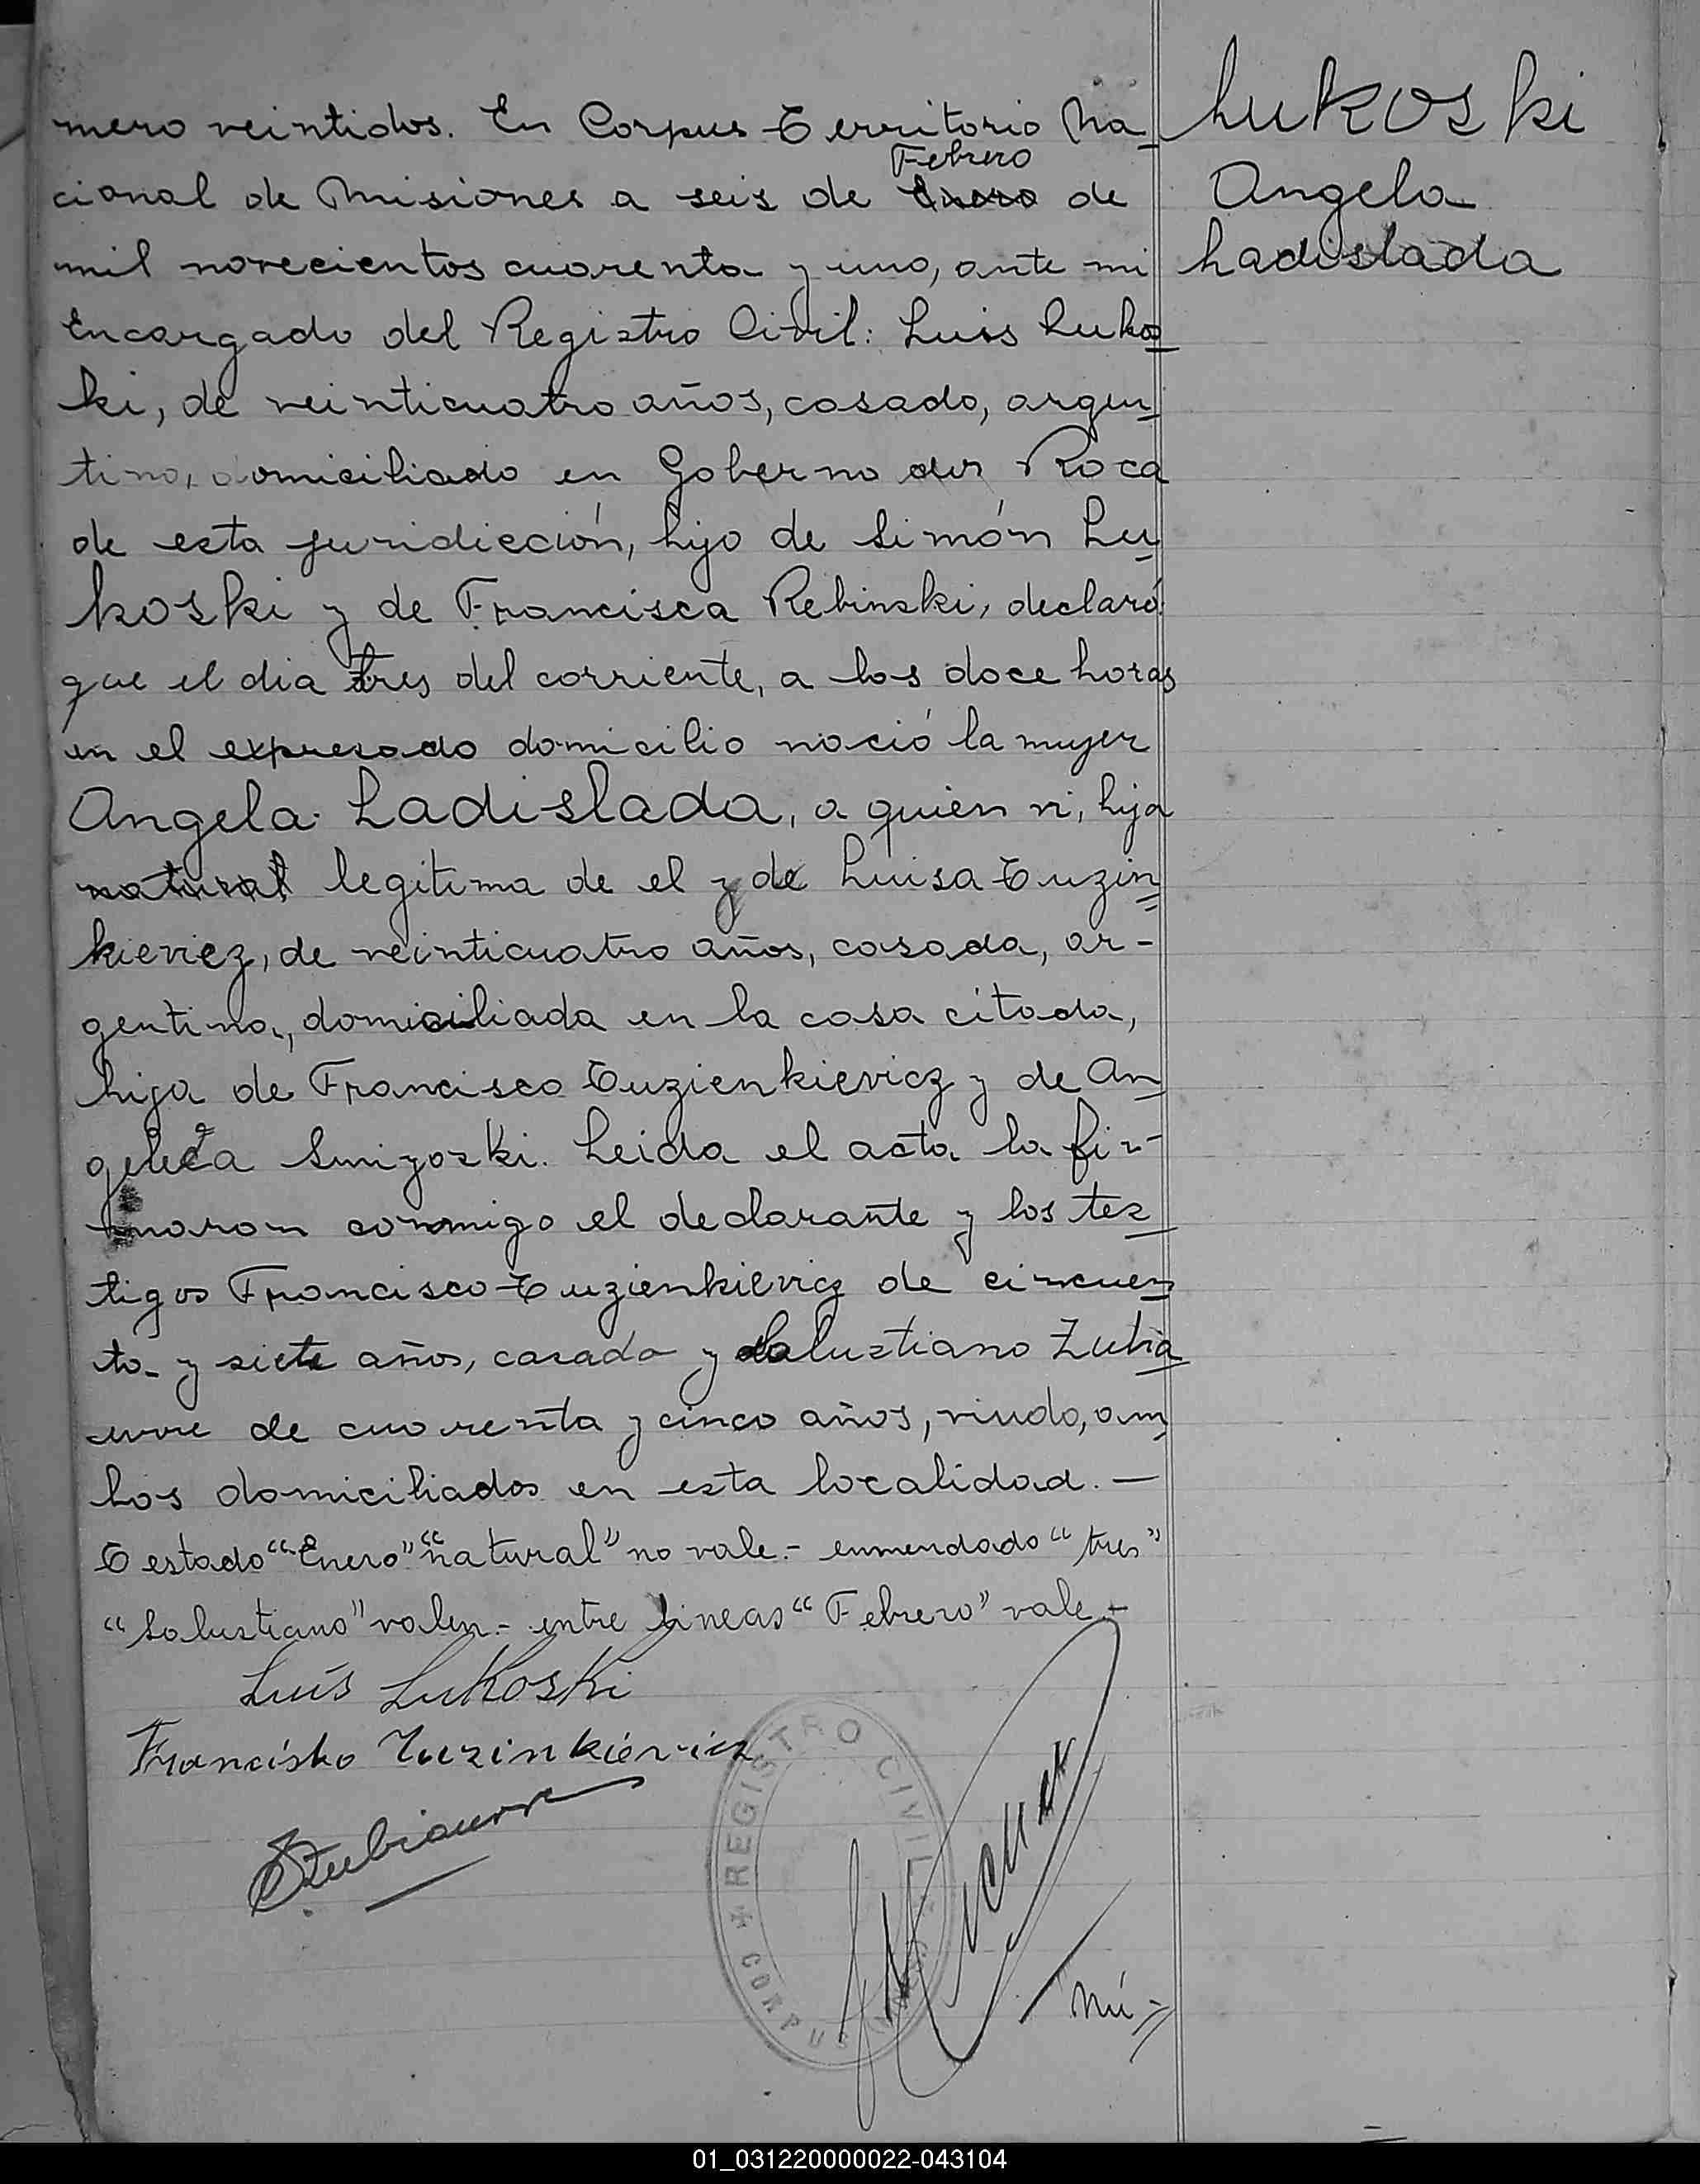 mero veintidos. En Corpus Territorio Na
Lukoski
Febrero
cional de Misiones a seis de Enero de
Angela
mil novecientos cuarenta y uno, ante mi
Ladislada
Encargado del Registro Civil: Luis Lukos
ki, de veinticuatro años, casado, argen
tino, domiciliado en Gobernador Roca
de esta juridicción, hijo de Simón Lu
koski y de Francisca Rebinski, declaró:
que el dia tres del corriente, a las doce horas
en el expresado domicilio nació la mujer
Angela Ladislada, a quien vi, hija
natural legitima de el y de Luisa Tuzin
kievicz, de veinticuatro años, casada, ar-
gentina, domiciliada en la casa citada,
hija de Francisco Tuzienkievicz y de An
Leida el acta la fir-
maron conmigo el declarante y los tes
tigos Francisco Tuzienkievicz de cincuen
ta y siete años, casado y Salustiano Zubia
urre de cuarenta y cinco años, viudo, am
bos domiciliados en esta localidad. —
Testado "Enero" "natural" no vale.- enmendado "tres"
"Salustiano" valen.- entre lineas "Febrero" vale.-
Luis Lukoski
Francisko Tuzinkievicz
SZubiaurre
REGISTRO CIVIL
CORPUS
Nú-
01_031220000022-043104